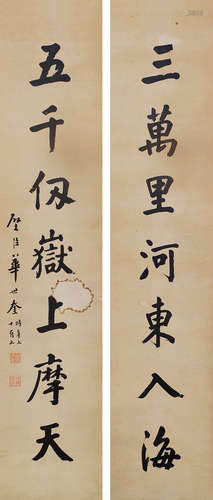 三萬里河東入海
五千仭嶽上摩天
璧臣華世奎